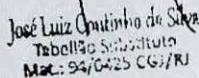 José Luiz Coutinho da Silva
Tabelião Substituto
Mat.: 94/0425 CGJ/RJ